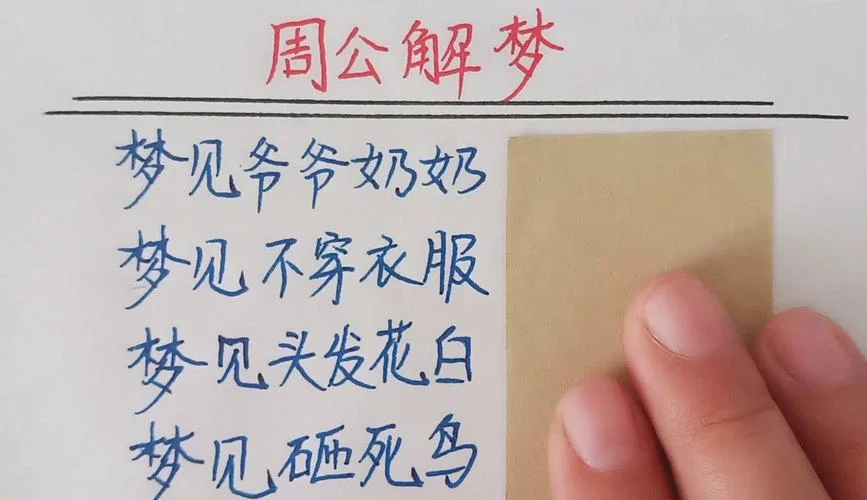 周公解梦
梦见爷爷奶奶
梦见不穿衣服
梦见头发花白
梦见砸死鸟